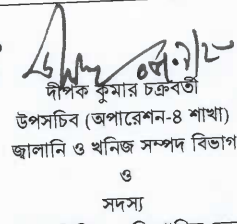 দীপক কুমার চক্রবর্তী
উপসচিব (অপারেশন-৪ শাখা)
জ্বালানি ও খনিজ সম্পদ বিভাগ
ও
সদস্য